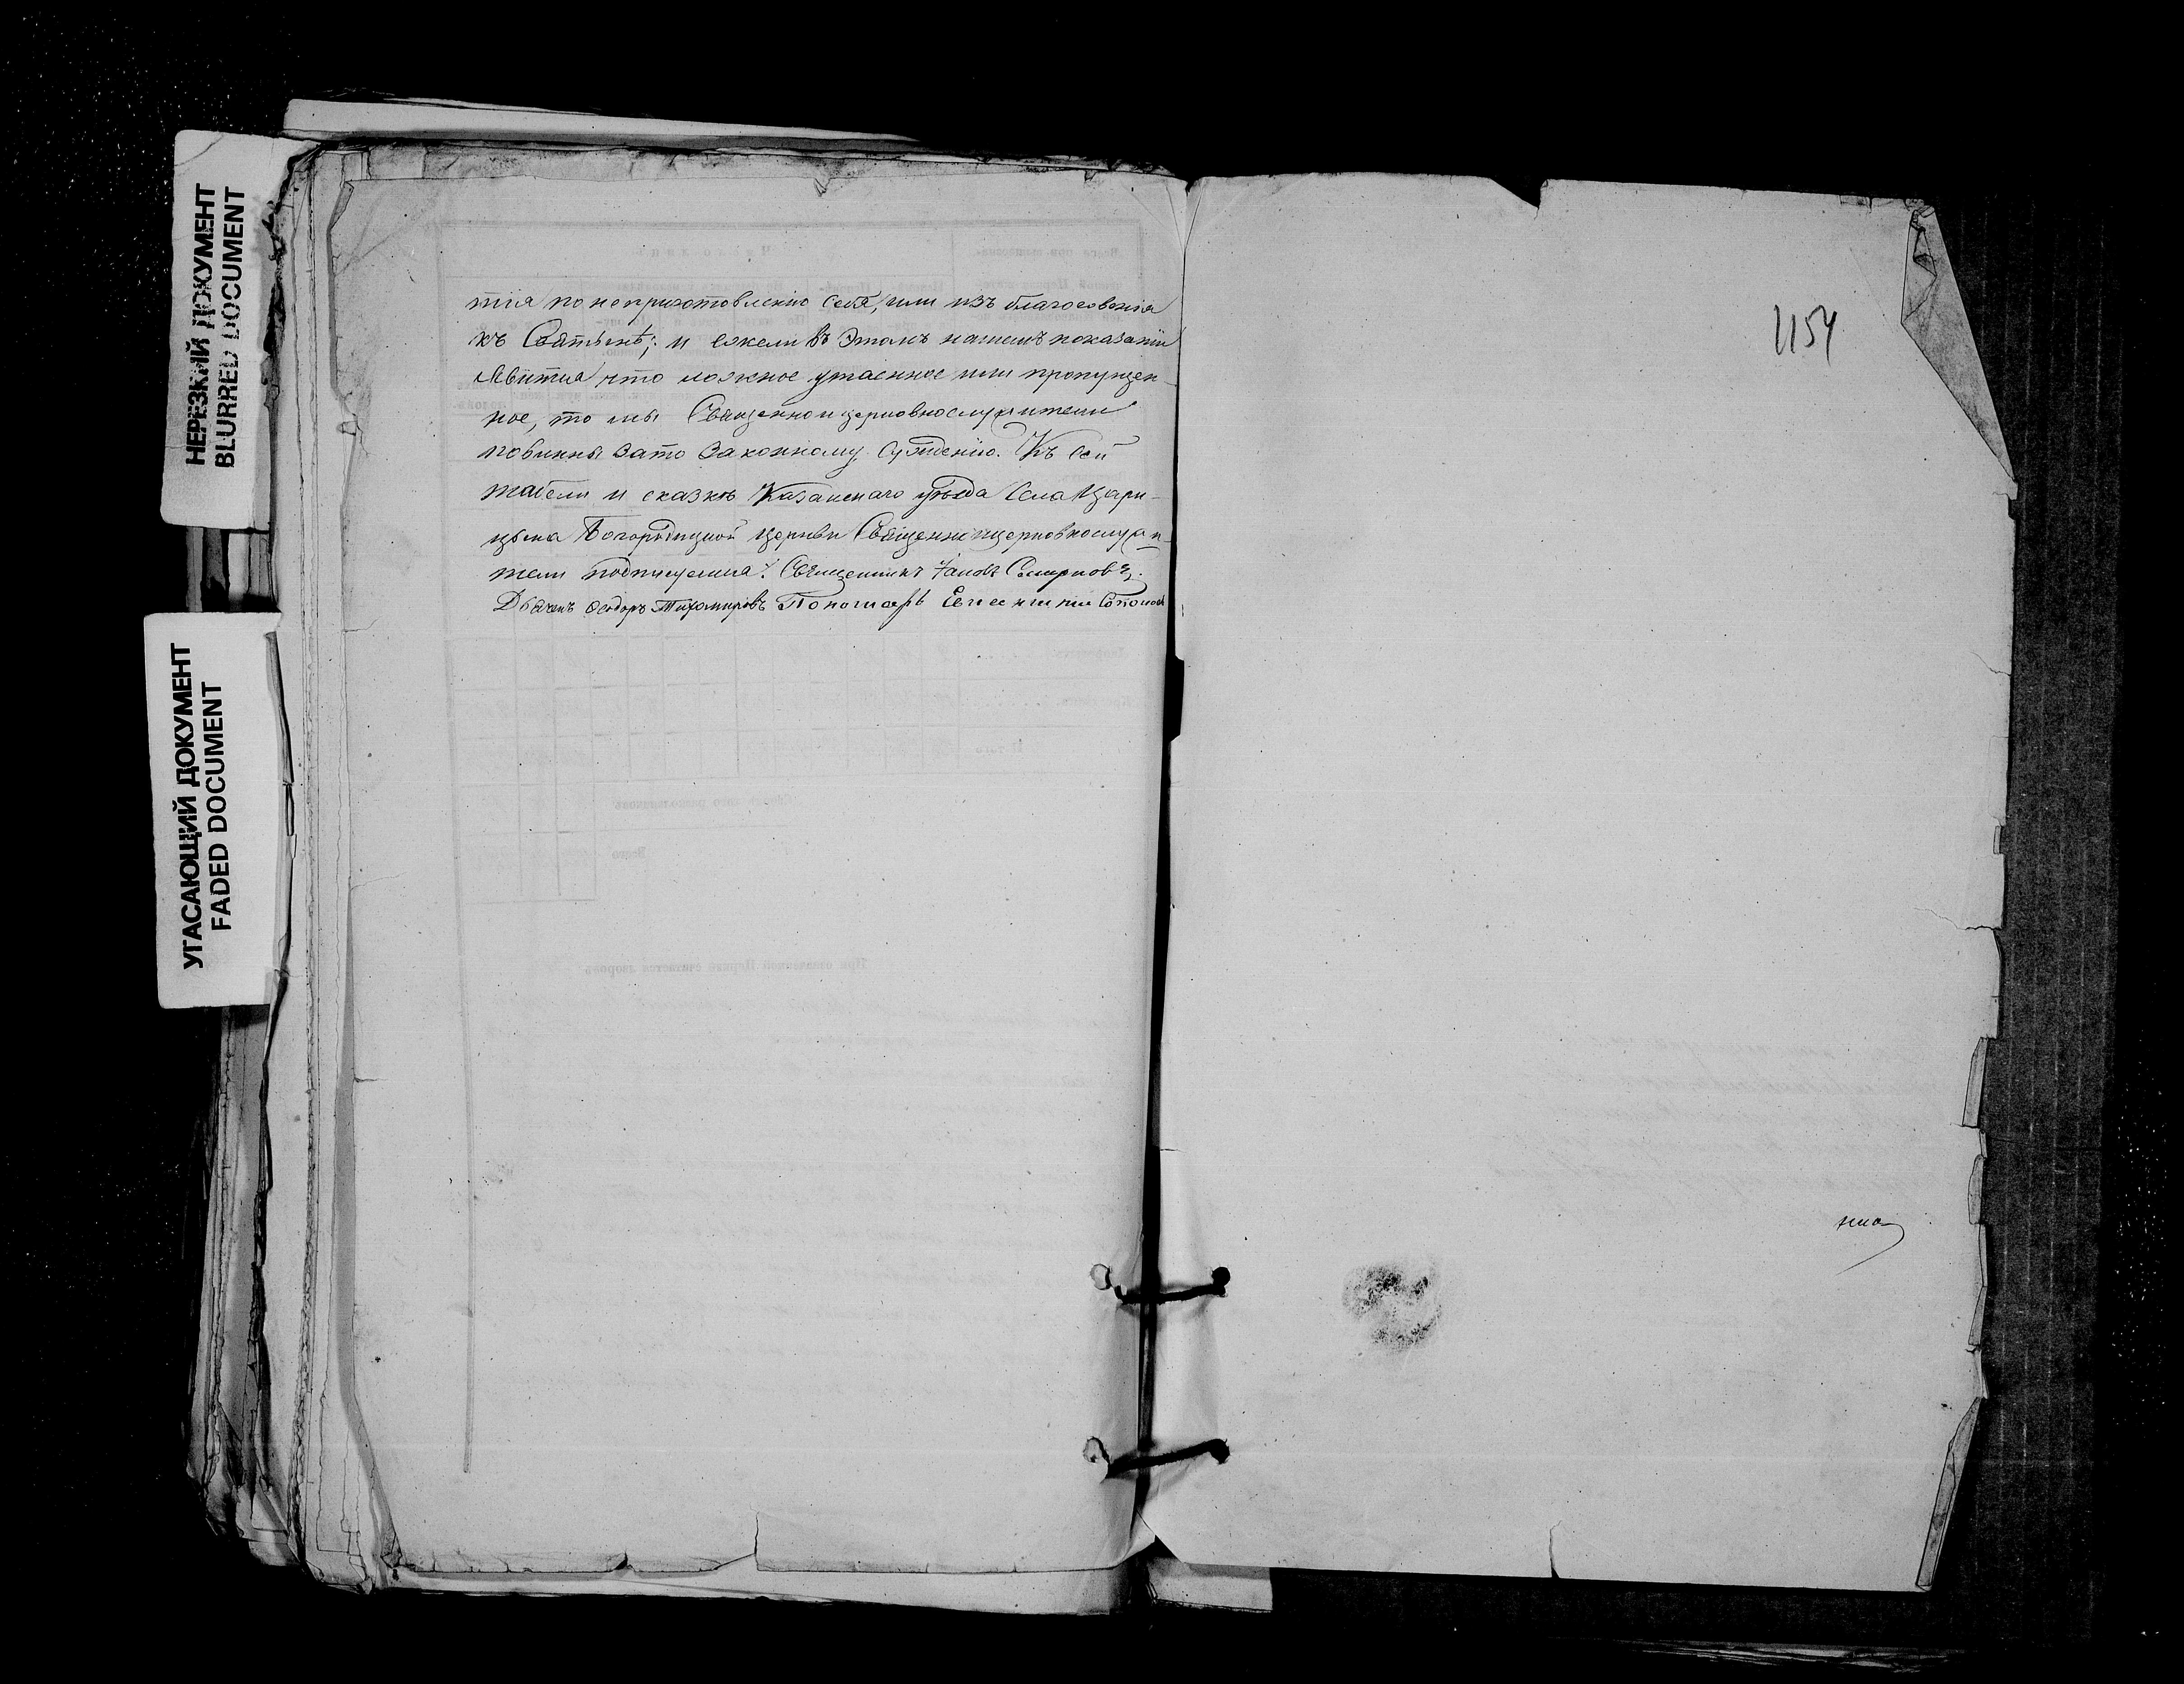 НЕРЕЗКИЙ ДОКУМЕНТ
BLURRED DOCUMENT
УГАСАЮЩИЙ ДОКУМЕНТ
FADED DOCUMENT
тія по неприготовленію себя, или изъ благоговенія
къ Святынѣ; и ежели въ этомъ нашемъ показаніи
явится что ложное утаенное или пропущен-
ное, то мы Священноицерковнослужители
повинны зато законному сужденію. Къ сей
табели и сказкѣ Казанскаго уѣзда Села Цари-
цына Богородицкой церкви Священноицерковнослужи-
тели подписуемся: Священникъ Іаковъ Смирновъ,
Дьячекъ Феодоръ Тихомировъ Пономарь
1154
При означенной Церкви считается дворовъ
Всего